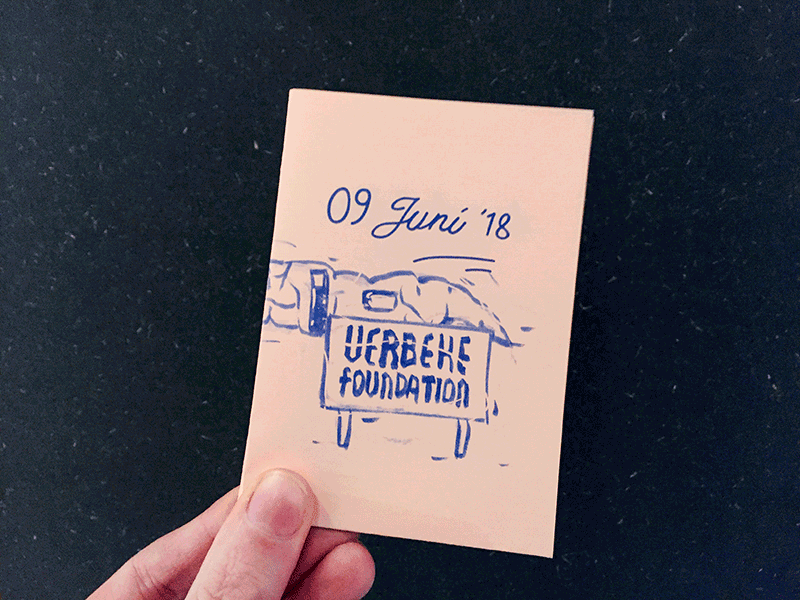 09 Juni '18
VERBEKE
fOUNDATION